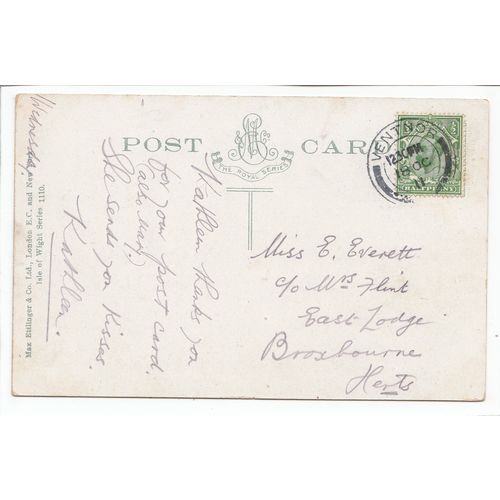 POST CARD
THE ROYAL SERIES
VENTNOR
12.30 PM
OC
HALFPENNY
Max Ettlinger & Co. Ltd., London E.C. and New
Isle of Wight Series 1110.
Wednesday
Kathleen thanks you
for your post card.
(also Mary)
She sends you Kisses.
Kathleen.
Miss E. Everett
c/o Mrs Flint
East Lodge
Broxbourne
Herts